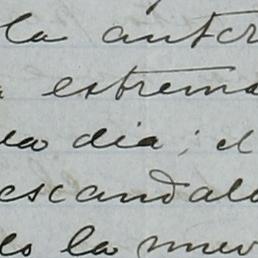 la anter
estrema
dia; el
escandalo
la nuev